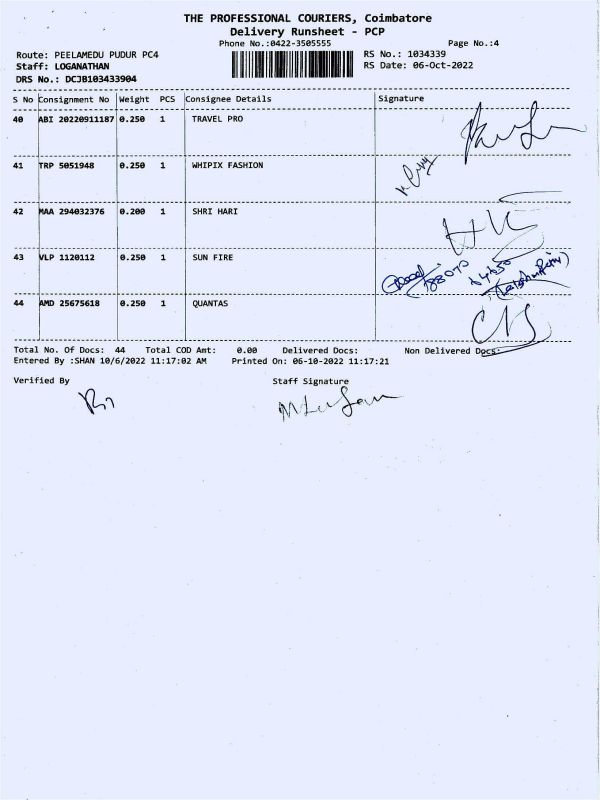 THE PROFESSIONAL COURIERS, Coimbatore
Delivery Runsheet - PCP
Phone No.:0422-3505555 Page No.:4
Route: PEELAMEDU PUDUR PC4 RS No.: 1034339
Staff: LOGANATHAN RS Date: 06-Oct-2022
DRS No.: DCJB103433904
S No Consignment No Weight PCS Consignee Details Signature
40 ABI 20220911187 0.250 1 TRAVEL PRO
41 TRP 5051948 0.250 1 WHIPIX FASHION
42 MAA 294032376 0.200 1 SHRI HARI
43 VLP 1120112 0.250 1 SUN FIRE
44 AMD 25675618 0.250 1 QUANTAS
Total No. Of Docs: 44 Total COD Amt: 0.00 Delivered Docs: Non Delivered Docs:
Entered By :SHAN 10/6/2022 11:17:02 AM Printed On: 06-10-2022 11:17:21
Verified By Staff Signature